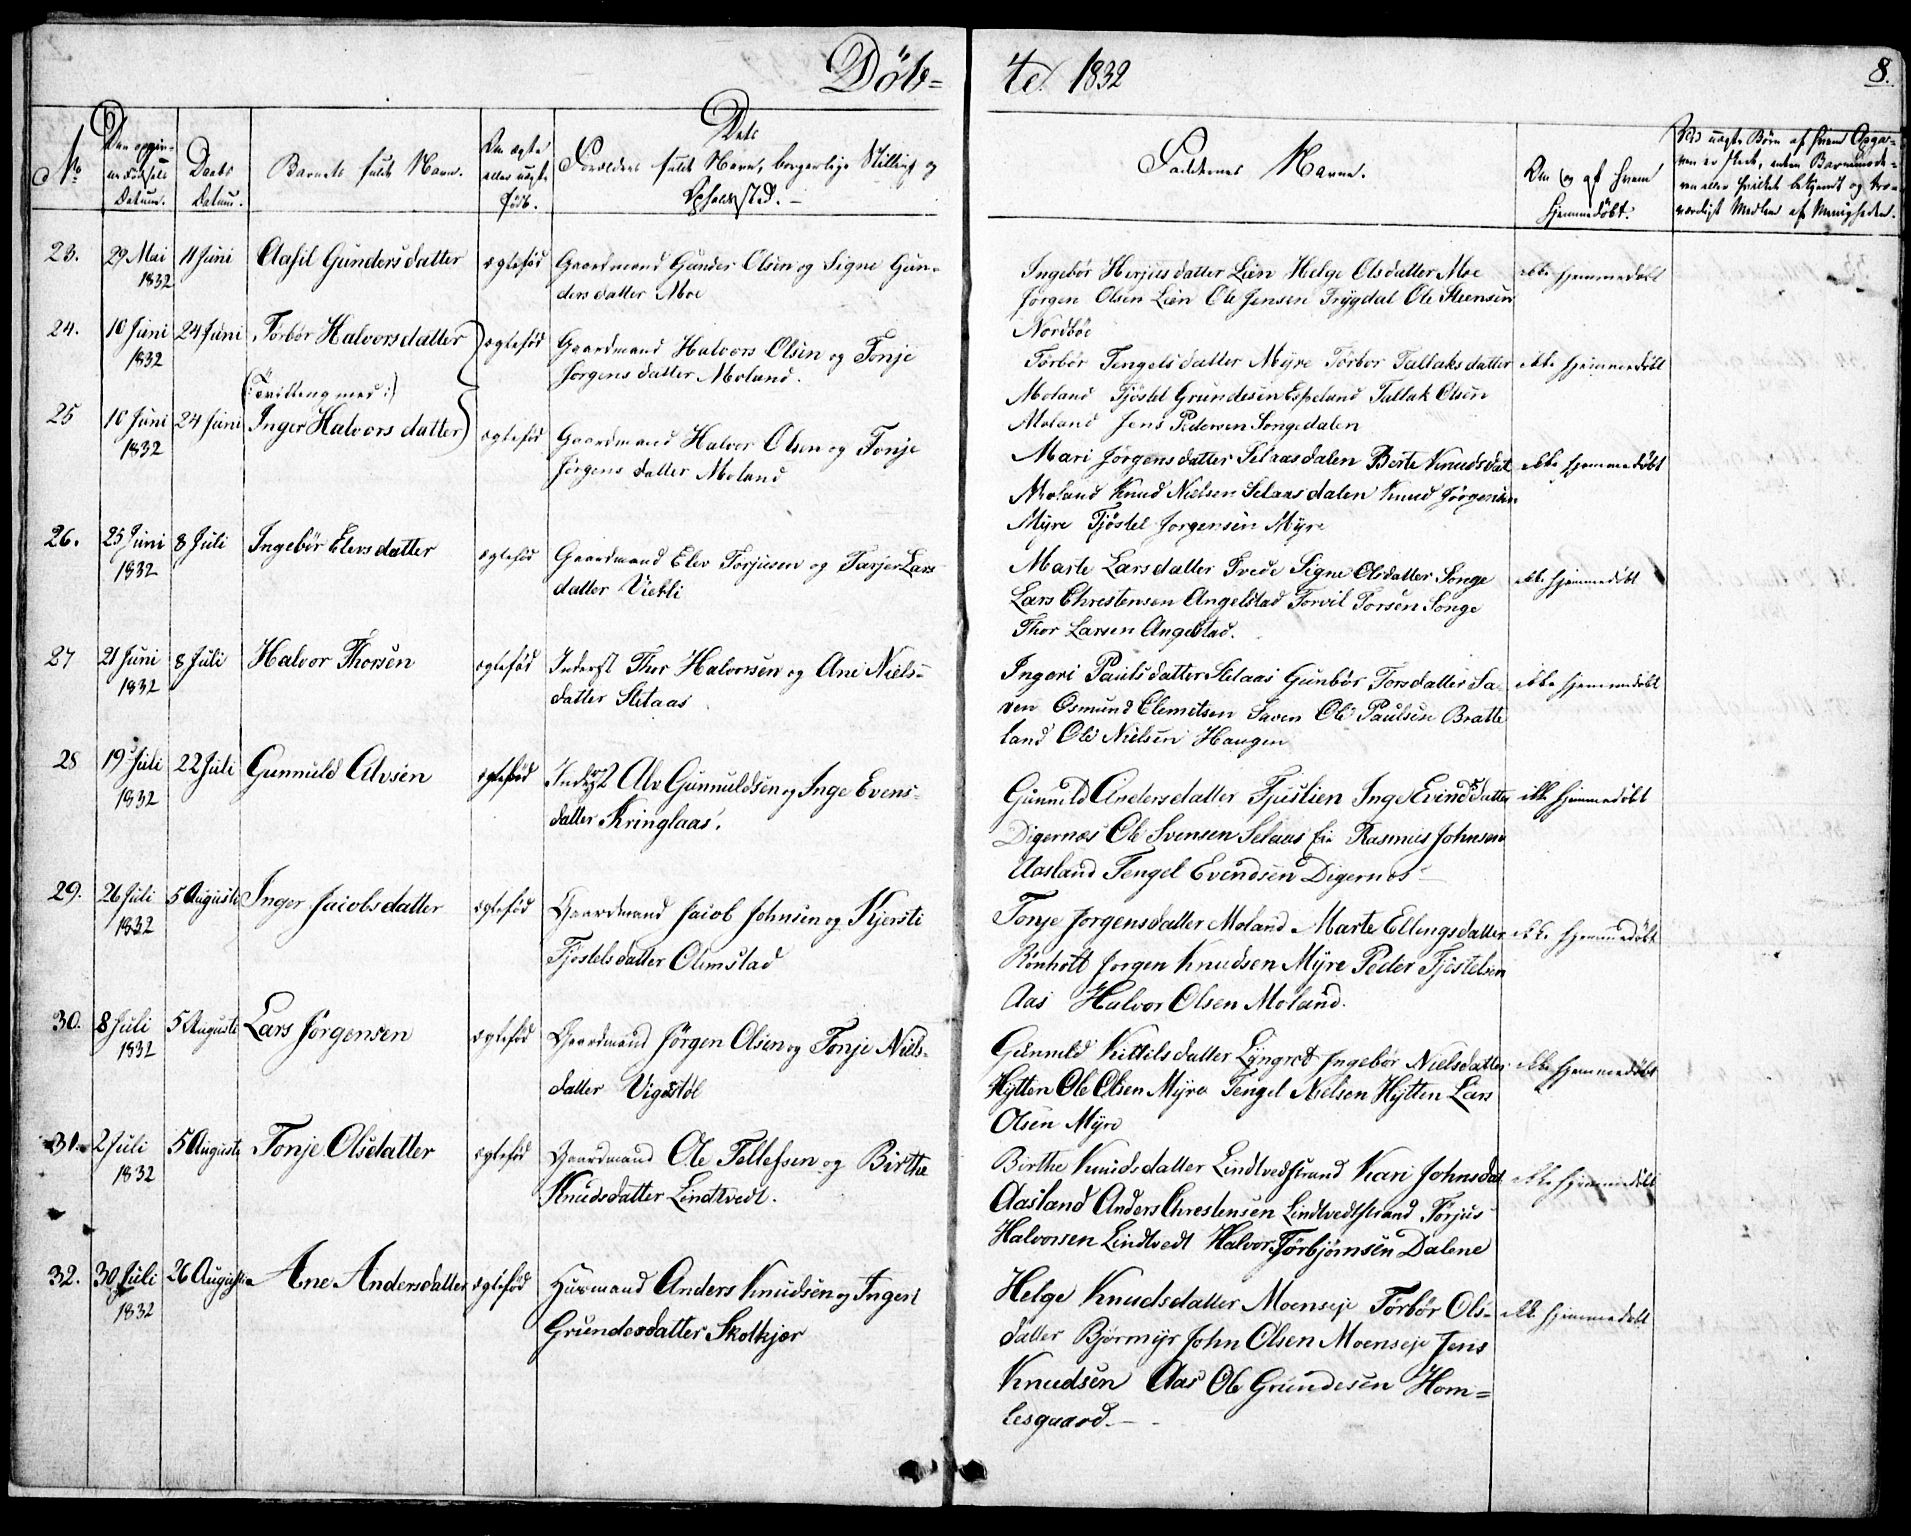 Døb-
te 1832
8.
No
Den opgivne Fødsels Datum.
Daabs Datum.
Barnets fulde Navn.
Om ægte eller uægte født.
Dets
Forældres fulde Navn, borgerlige Stilling og
Opholdssted.
Faddernes Navne.
Om og af hvem
hjemmedøbt.
23.
29 Mai
1832
11 Juni
Aasil Gundersdatter
ægtefød
Gaardmand Gunder Olsen og Signe Gun-
dersdatter Moe
Ingebør Herjusdatter Lien Helge Olsdatter Moe
Jørgen Olsen Lien Ole Jensen Trygdal Ole Steensen
Nordbøe
ikke hjemmedøbt
24.
10 Juni
1832
24 Juni
Torbør Halvorsdatter
(: Tvilling med :)
ægtefød
Gaardmand Halvors Olsen og Tonje
Jørgensdatter Moland.
Torbør Tengelsdatter Myre Torbor Tallaksdatter
Moland Tjøstel Grundesen Espeland Tallak Olsen
Moland Jens Pedersen Songedalen
ikke hjemmedøbt
25
10 Juni
1832
24 Juni
Inger Halvorsdatter
ægtefød
Gaardmand Halvor Olsen og Tonje
Jørgensdatter Moland
Mari Jørgensdatter Selaasdalen Berte Knudsdat
Moland Knud Nielsen Selaasdalen Knud Jørgensen
Myre Tjøstel Jorgensen Myre
ikke hjemmedøbt
26.
25 Juni
1832
8 Juli
Ingebør Elevsdatter
ægtefød
Gaardmand Elev Torjusen og Tarjer Lars
datter Viekli
Marte Larsdatter Trede Signe Olsdatter Songe
Lars Christensen Angelstad Torvil Torsen Songe
Thor Larsen Angelstad.
ikke hjemmedøbt
27
21 Juni
1832
8 Juli
Halvor Thorsen
ægtefød
Inderst Thor Halvorsen og Ane Niels-
datter Stelaas
Ingeri Paulsdatter Stelaas Gunbør Torsdatter Sa-
ven Osmund Clemetsen Saven Ole Paulsen Bratte
land Ole Nielsen Haugen
ikke hjemmedøbt
28
19 Juli
1832
22 Juli
Gunnuld Alvsen
ægtefød
Inderst Alv Gunnuldsen og Inge Evens-
datter Kringlaas.
Gunuld Andersdatter Inge Evindsdatter
Digernæs Ole Svensen Selaas Eie Rasmus Johnsen
Aasland Tengel Evendsen Digernes
ikke hjemmedøbt
29.
26 Juli
1832
5 Auguste
Inger Jacobsdatter
ægtefød
Gaardmand Jacob Johnsen og Kjersti
Tjøstelsdatter Olimstad
Tonje Jorgensdatter Moland Marte Ellengsdatter
Rønholt Jorgen Knudsen Myre Peder Tjøstelsen
Aas Halvor Olsen Moland.
ikke hjemmedøbt
30.
8 Juli
1832
5 Auguste
Lars Jørgensen
ægtefød
Gaardmand Jørgen Olsen og Tonje Niels-
datter Vigestøl
Gunnild Kittilsdatter Lyngrot Ingebør Nielsdatter
Hytten Ole Olsen Myre Tengel Nielsen Hytten Lars
Olsen Myre
ikke hjemmedøbt
31.
2 Juli
1832
5 Auguste
Tonje Olsdatter
ægtefød
Gaardmand Ole Tellefsen og Birthe
Knudsdatter Lindtvedt.
Birthe Knudsdatter Lindtvedstrand Kari Johnsdat
Aasland Anders Chrestensen Lindtvedtstrand Torjus
Halvorsen Lindtvedt Halvor Torbjørnsen Dalene
ikke hjemmedøbt
32.
30 Juli
1832
26 Auguste
Ane Andersdatter
ægtefød
Husmand Anders Knudsen og Ingeri
Grundesdatter Skolkjær
Helge Knudsdatter Moenseje Torbør Ols-
datter Bjørmyr John Olsen Moenseje Jens
Knudsen Aas Ole Grundesen Hom-
lesgaard.
ikke hjemmedøbt